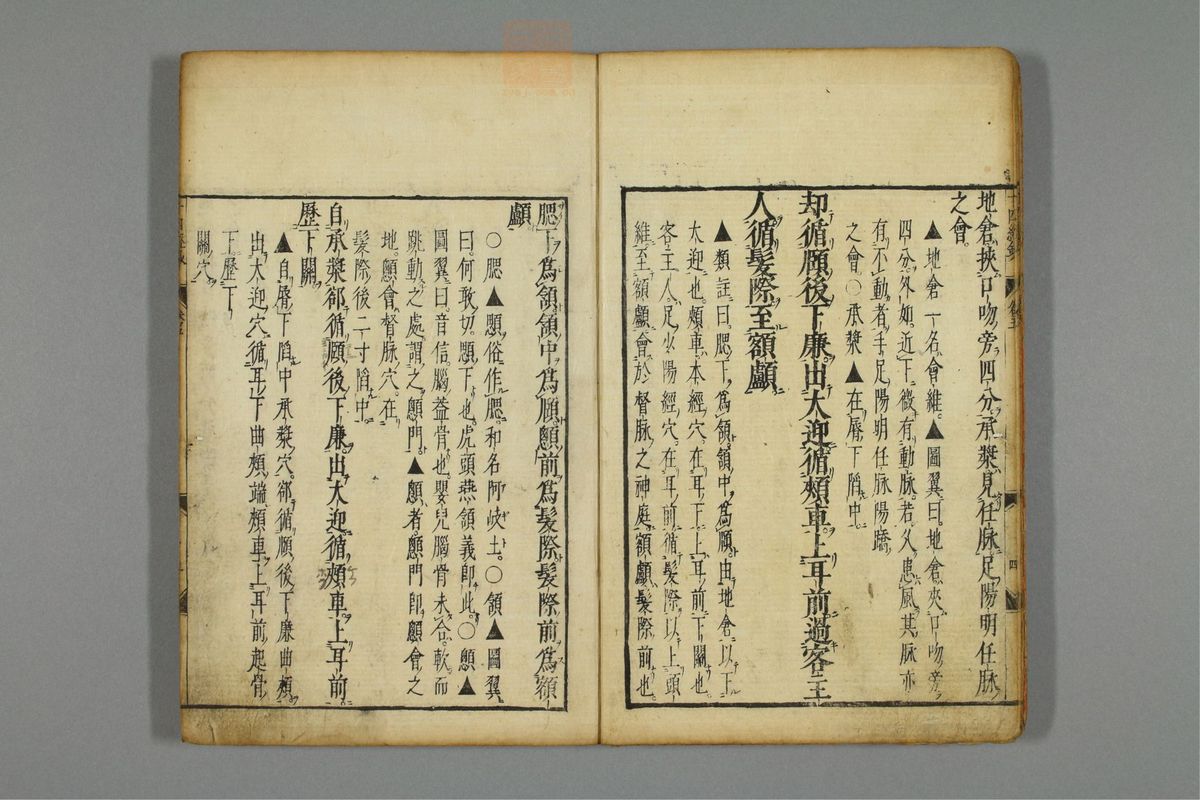 地倉挾口吻旁四分承漿見任脉足陽明任脉
之會
▲地倉一名會維▲圖翼曰地倉夾口吻旁
四分外如近下微有動脉若久患風其脉亦
有不動者手足陽明任脉陽蹻
之會○承漿▲在脣下陷中
却循頤後下廉出大迎循頰車上耳前過客主
人循髮際至額顱
▲類註曰腮下爲頷頷中爲頤由地倉以下
大迎也頰車本經穴在耳下上耳前下關也
客主人足少陽經穴在耳前循髮際以上頭
維至額顱會於督脉之神庭額顱髮際前也
腮下爲頷頷中爲頤顖前爲髮際髮際前爲額
顱
○腮▲顋俗作腮和名阿岐土○頷▲圖翼
曰何敢切顋下也虎頭燕頷義即此○顖▲
圖翼曰音信腦蓋骨也嬰兒腦骨未合軟而
跳動之處謂之顖門▲顖者顖門即顖會之
地顖會督脉穴在
髮際後二寸陷中
自承漿郤循頤後下廉出大迎循頰車上耳前
歷下關
▲自脣下陷中承漿穴郤循頤後下廉曲頰
出大迎穴循耳下曲頰端頰車上耳前起骨
上歷下
關穴
四